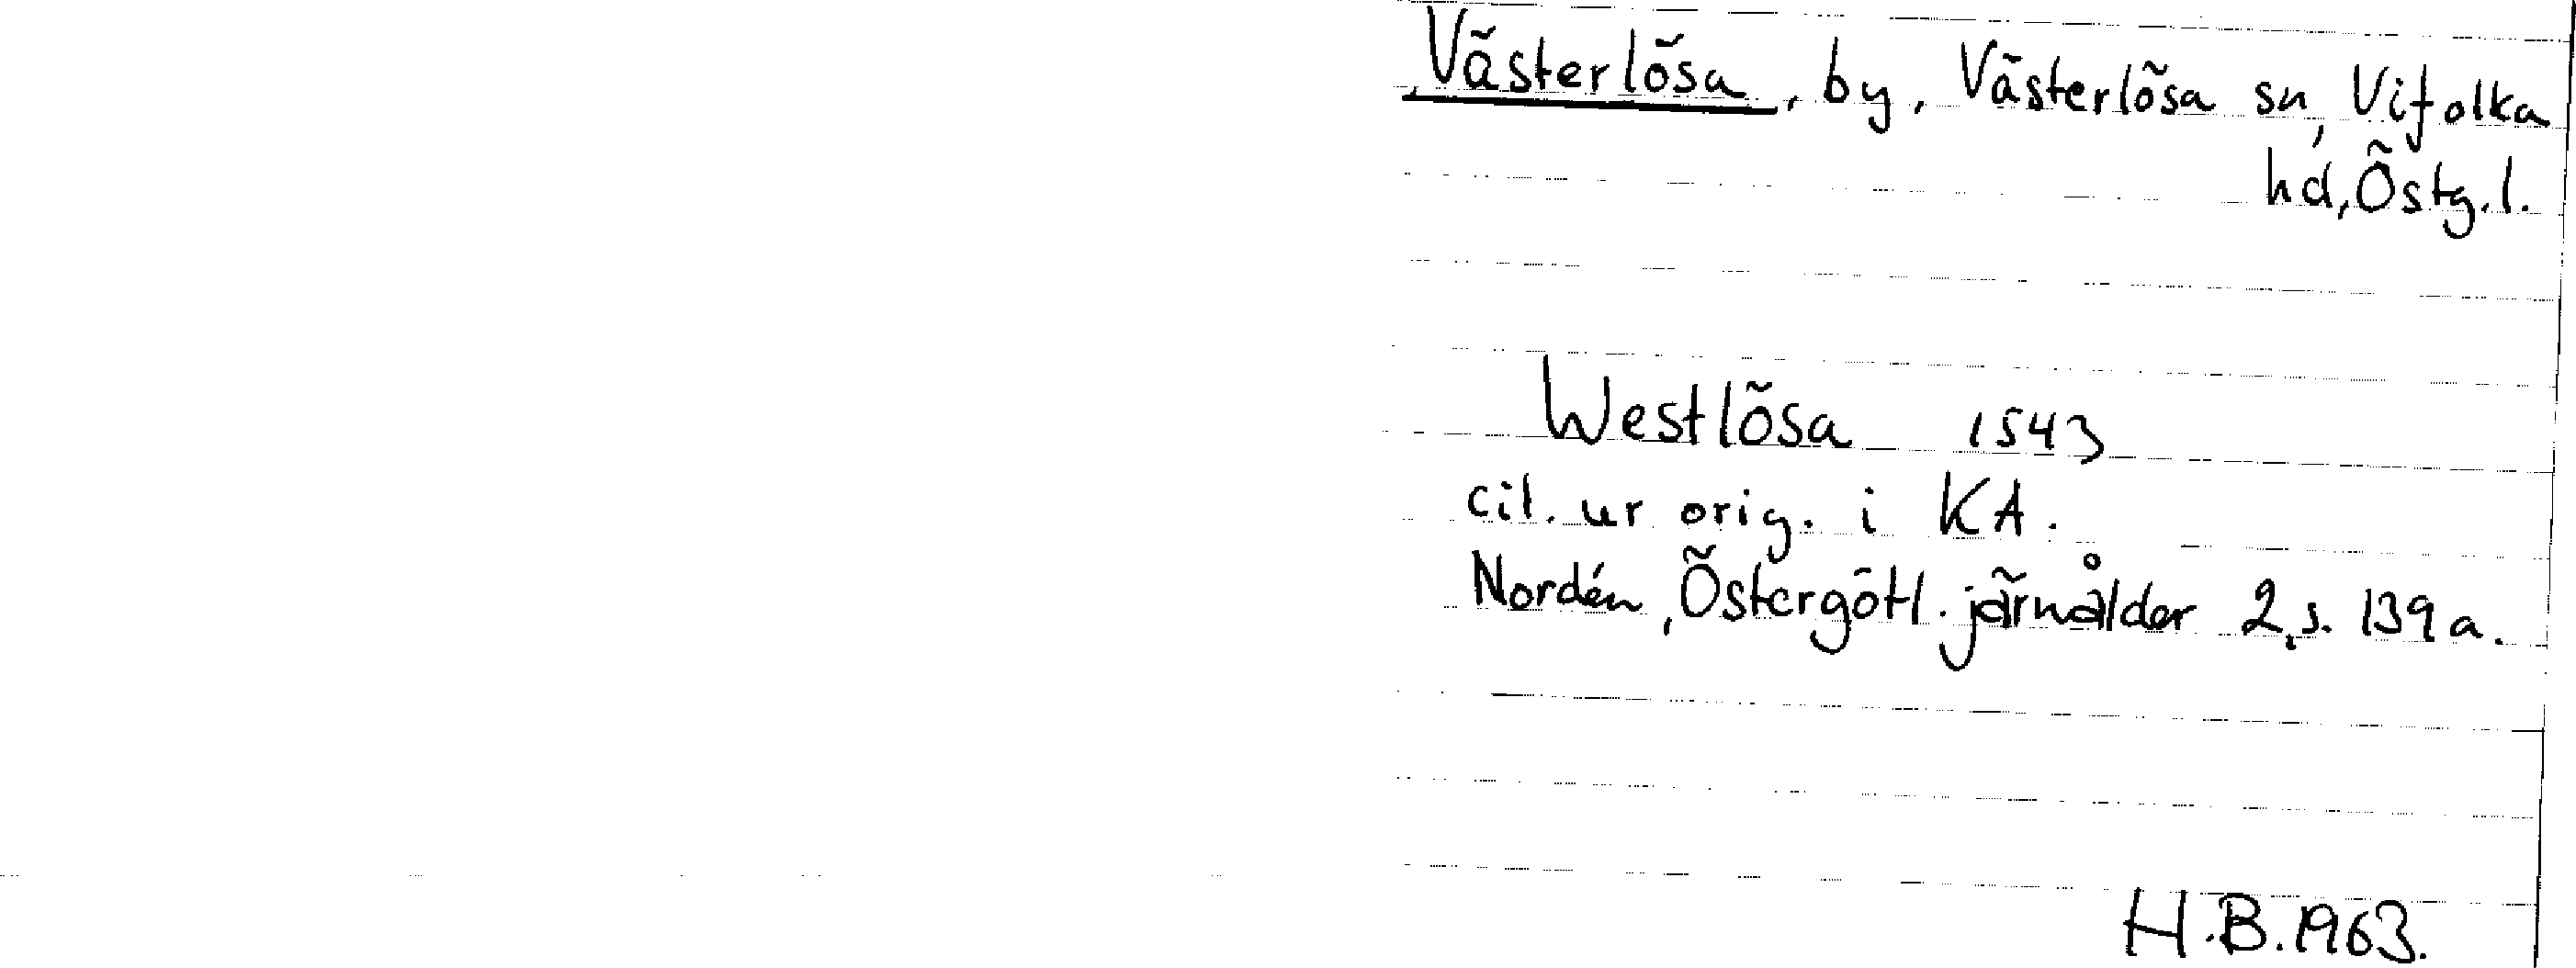 Västerlösa, by, Västerlösa sn, Vifolka
hd, Östg.l.
Westlösa 1543
cit. ur orig. i KA.
Nordén, Östergötl. järnålder 2, s. 139 a.
H.B. 1963.